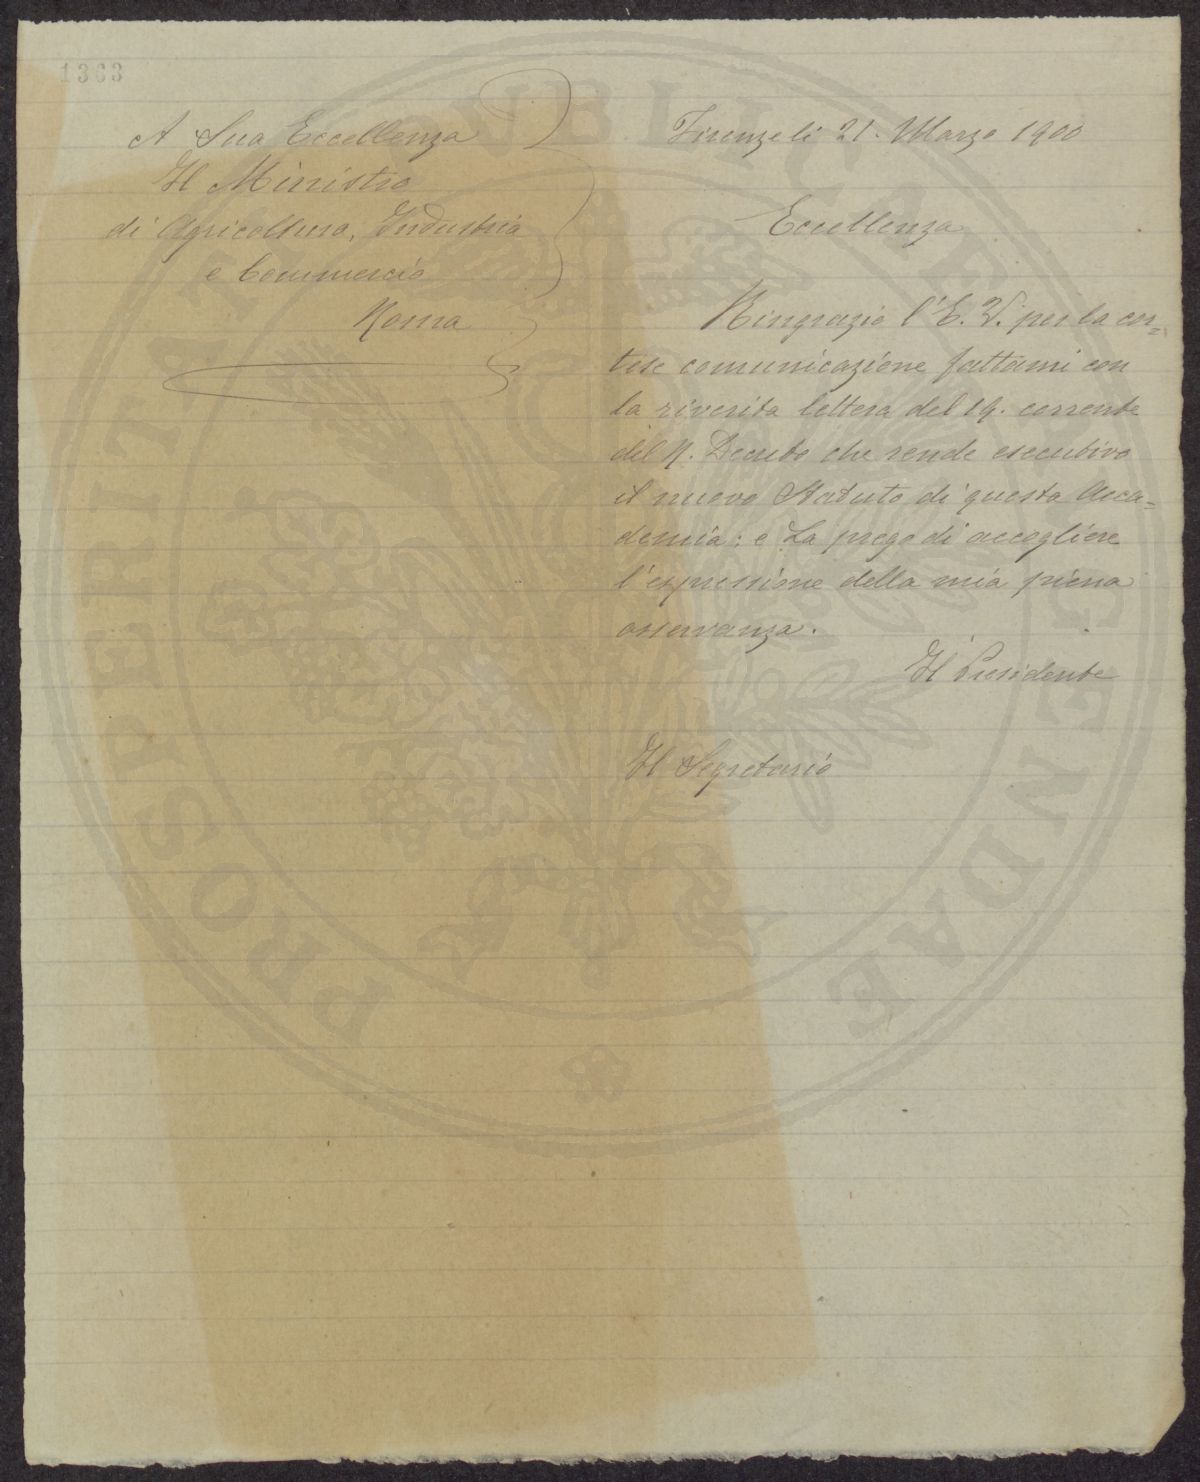 1363
A Sua Eccellenza
Il Ministro
di Agricoltura, Industria
e Commercio
Roma
Firenze li 21. Marzo 1900
Eccellenza
Ringrazio l'E. V. per la cor=
tese comunicazione fattami con
la riverita lettera del 19. corrente
del R. Decreto che rende esecutivo
il nuovo Statuto di questa Acca=
demia: e La prego di accogliere
l'espressione della mia piena
osservanza.
Il Presidente
Il Segretario
PROSPERITATI PUBLICAE AUGENDAE